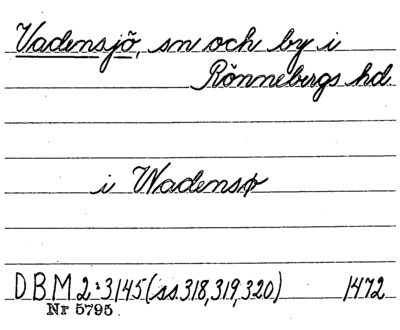 Vadensjö, sn och by i
Rönnebergs hd.
i Wadensø
DBM 2:3145 (ss. 318, 319, 320) 1472
Nr 5795